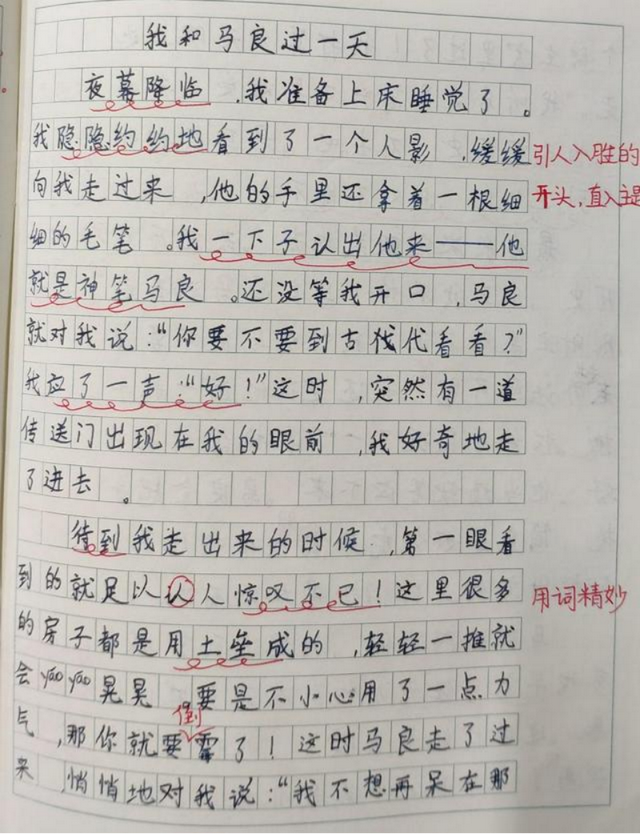 我和马良过一天
夜幕降临，我准备上床睡觉了。
我隐隐约约地看到了一个人影，缓缓
引人入胜的
向我走过来，他的手里还拿着一根细
开头，直入主题
细的毛笔。我一下子认出他来——他
就是神笔马良。还没等我开口，马良
就对我说：“你要不要到古代看看？”
我应了一声：“好！”这时，突然有一道
传送门出现在我的眼前，我好奇地走
了进去。
待到我走出来的时候，第一眼看
到的就足以认人惊叹不已！这里很多
用词精妙
的房子都是用土垒成的，轻轻一推就
会yáo yáo晃晃 要是不小心用了一点力
倒
气，那你就要霉了！这时马良走了过
来，悄悄地对我说：“我不想再呆在那